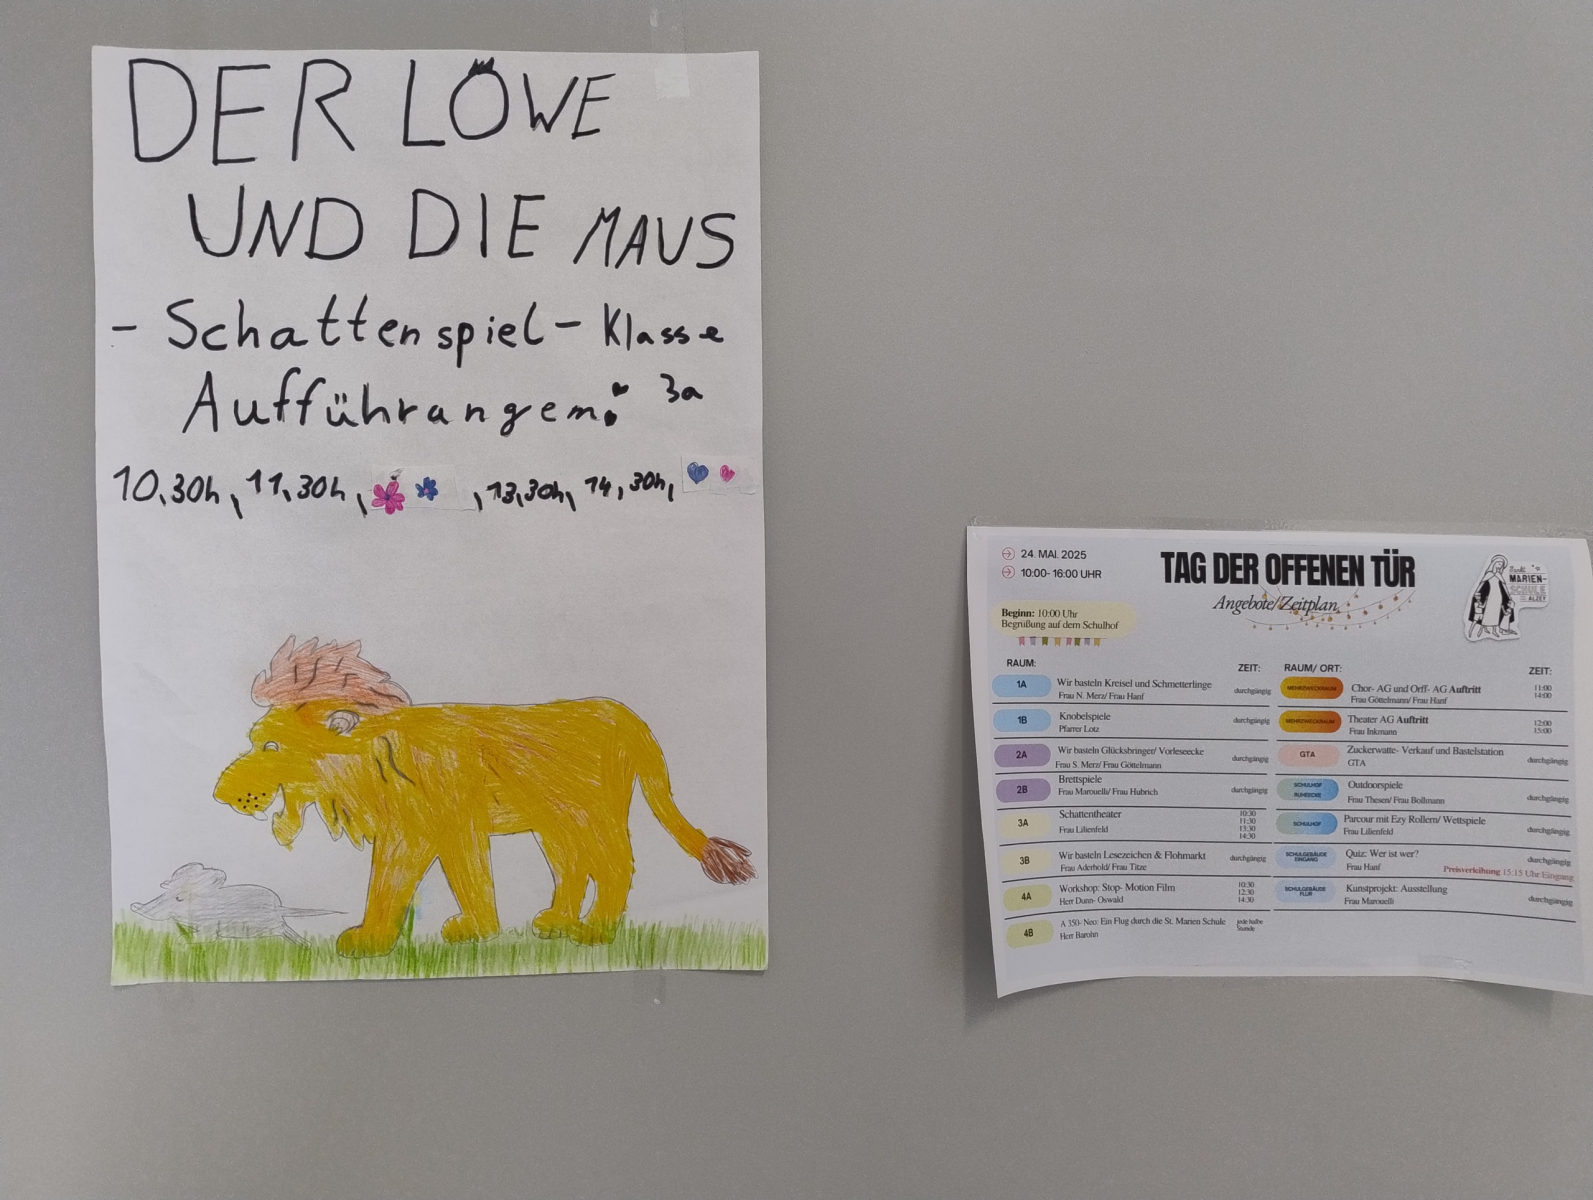 DER LÖWE
UND DIE MAUS
- Schattenspiel - Klasse
Aufführangem: 3a
10,30h, 11,30h, , 13,30h, 14,30h,
24. MAI. 2025
10:00- 16:00 UHR
TAG DER OFFENEN TÜR
Angebote/Zeitplan
Sankt
MARIEN-
SCHULE
ALZEY
Beginn: 10:00 Uhr
Begrüßung auf dem Schulhof
RAUM: ZEIT:
1A Wir basteln Kreisel und Schmetterlinge durchgängig
Frau N. Merz/ Frau Hanf
1B Knobelspiele durchgängig
Pfarrer Lotz
2A Wir basteln Glücksbringer/ Vorleseecke durchgängig
Frau S. Merz/ Frau Göttelmann
2B Brettspiele durchgängig
Frau Marouelli/ Frau Hubrich
3A Schattentheater 10:30
11:30
Frau Lilienfeld 13:30
14:30
3B Wir basteln Lesezeichen & Flohmarkt durchgängig
Frau Aderhold/ Frau Titze
4A Workshop: Stop- Motion Film 10:30
12:30
Herr Dunn- Oswald 14:30
4B A 350- Neo: Ein Flug durch die St. Marien Schule jede halbe
Stunde
Herr Barohn
RAUM/ ORT: ZEIT:
MEHRZWECKRAUM Chor- AG und Orff- AG Auftritt 11:00
14:00
Frau Göttelmann/ Frau Hanf
MEHRZWECKRAUM Theater AG Auftritt 12:00
15:00
Frau Inkmann
GTA Zuckerwatte- Verkauf und Bastelstation durchgängig
GTA
SCHULHOF Outdoorspiele durchgängig
RUHEECKE Frau Thesen/ Frau Bollmann
SCHULHOF Parcour mit Ezy Rollern/ Wettspiele durchgängig
Frau Lilienfeld
SCHULGEBÄUDE Quiz: Wer ist wer? durchgängig
EINGANG Frau Hanf Preisverleihung 15:15 Uhr Eingang
SCHULGEBÄUDE Kunstprojekt: Ausstellung durchgängig
FLUR Frau Marouelli